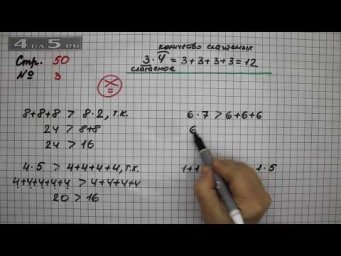 4 да 5.RU
Стр. 50
№ 3
количество слагаемых
3 · 4 = 3 + 3 + 3 + 3 = 12
слагаемое
× =
8+8+8 > 8 · 2, т.к.
24 > 8+8
24 > 16
4 · 5 > 4+4+4+4, т.к.
4+4+4+4+4 > 4+4+4+4
20 > 16
6 · 7 > 6+6+6
6
1+1
1 · 5